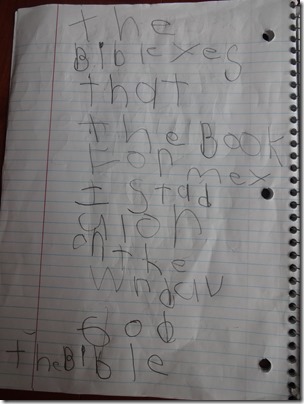 the
BiblexeS
that
the BOOK
Fon mex
I Stad
alon
on the
wndau
God
the Bible